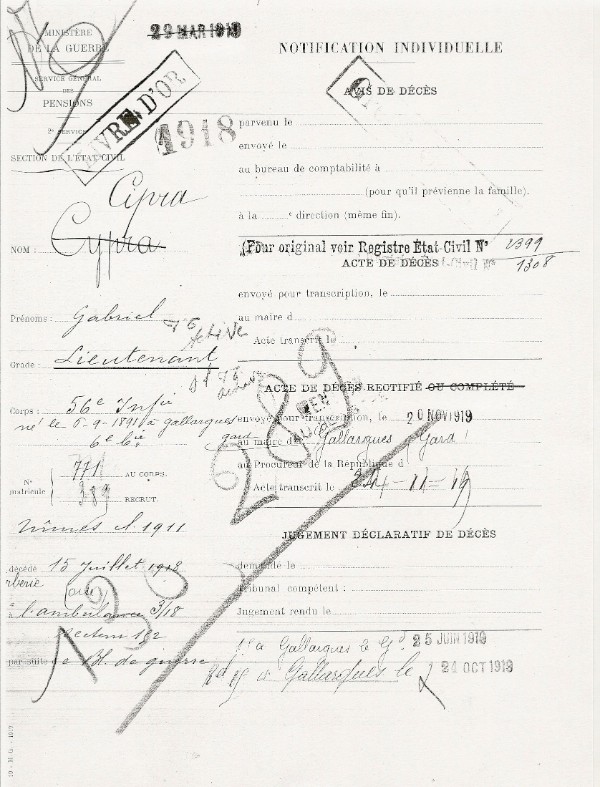 29 MAR 1919
MINISTÈRE
DE LA GUERRE
SERVICE GÉNÉRAL
DES
PENSIONS
2e SERVICE
SECTION DE L'ÉTAT CIVIL
LIVRE D'OR
1918
Cipra
NOM : Cypra
Prénoms : Gabriel
Active
Grade : Lieutenant
Corps : 56e Infie
né le 6-9-1891 à gallargues
gard
6e Cie
No matricule
771 AU CORPS.
389 RECRUT.
Nîmes cl 1911
décédé 15 Juillet 1918
à l'ambulance 3/18
secteur 182
par suite de Bl. de guerre
NOTIFICATION INDIVIDUELLE
AVIS DE DÉCÈS
parvenu le
envoyé le
au bureau de comptabilité à
(pour qu'il prévienne la famille).
à la e direction (même fin).
(Pour original voir Registre État-Civil No 2399
ACTE DE DÉCÈS 1308
envoyé pour transcription, le
au maire d
Acte transcrit le
ACTE DE DÉCÈS RECTIFIÉ OU COMPLÉTÉ
envoyé pour transcription, le 20 NOV 1919
au maire d Gallargues (Gard)
au Procureur de la République d
Acte transcrit le 24-11-19
289
JUGEMENT DÉCLARATIF DE DÉCÈS
demandé le
Tribunal compétent :
Jugement rendu le
1o à Gallargues le Gd 25 JUIN 1919
Gallargues le 24 OCT 1919